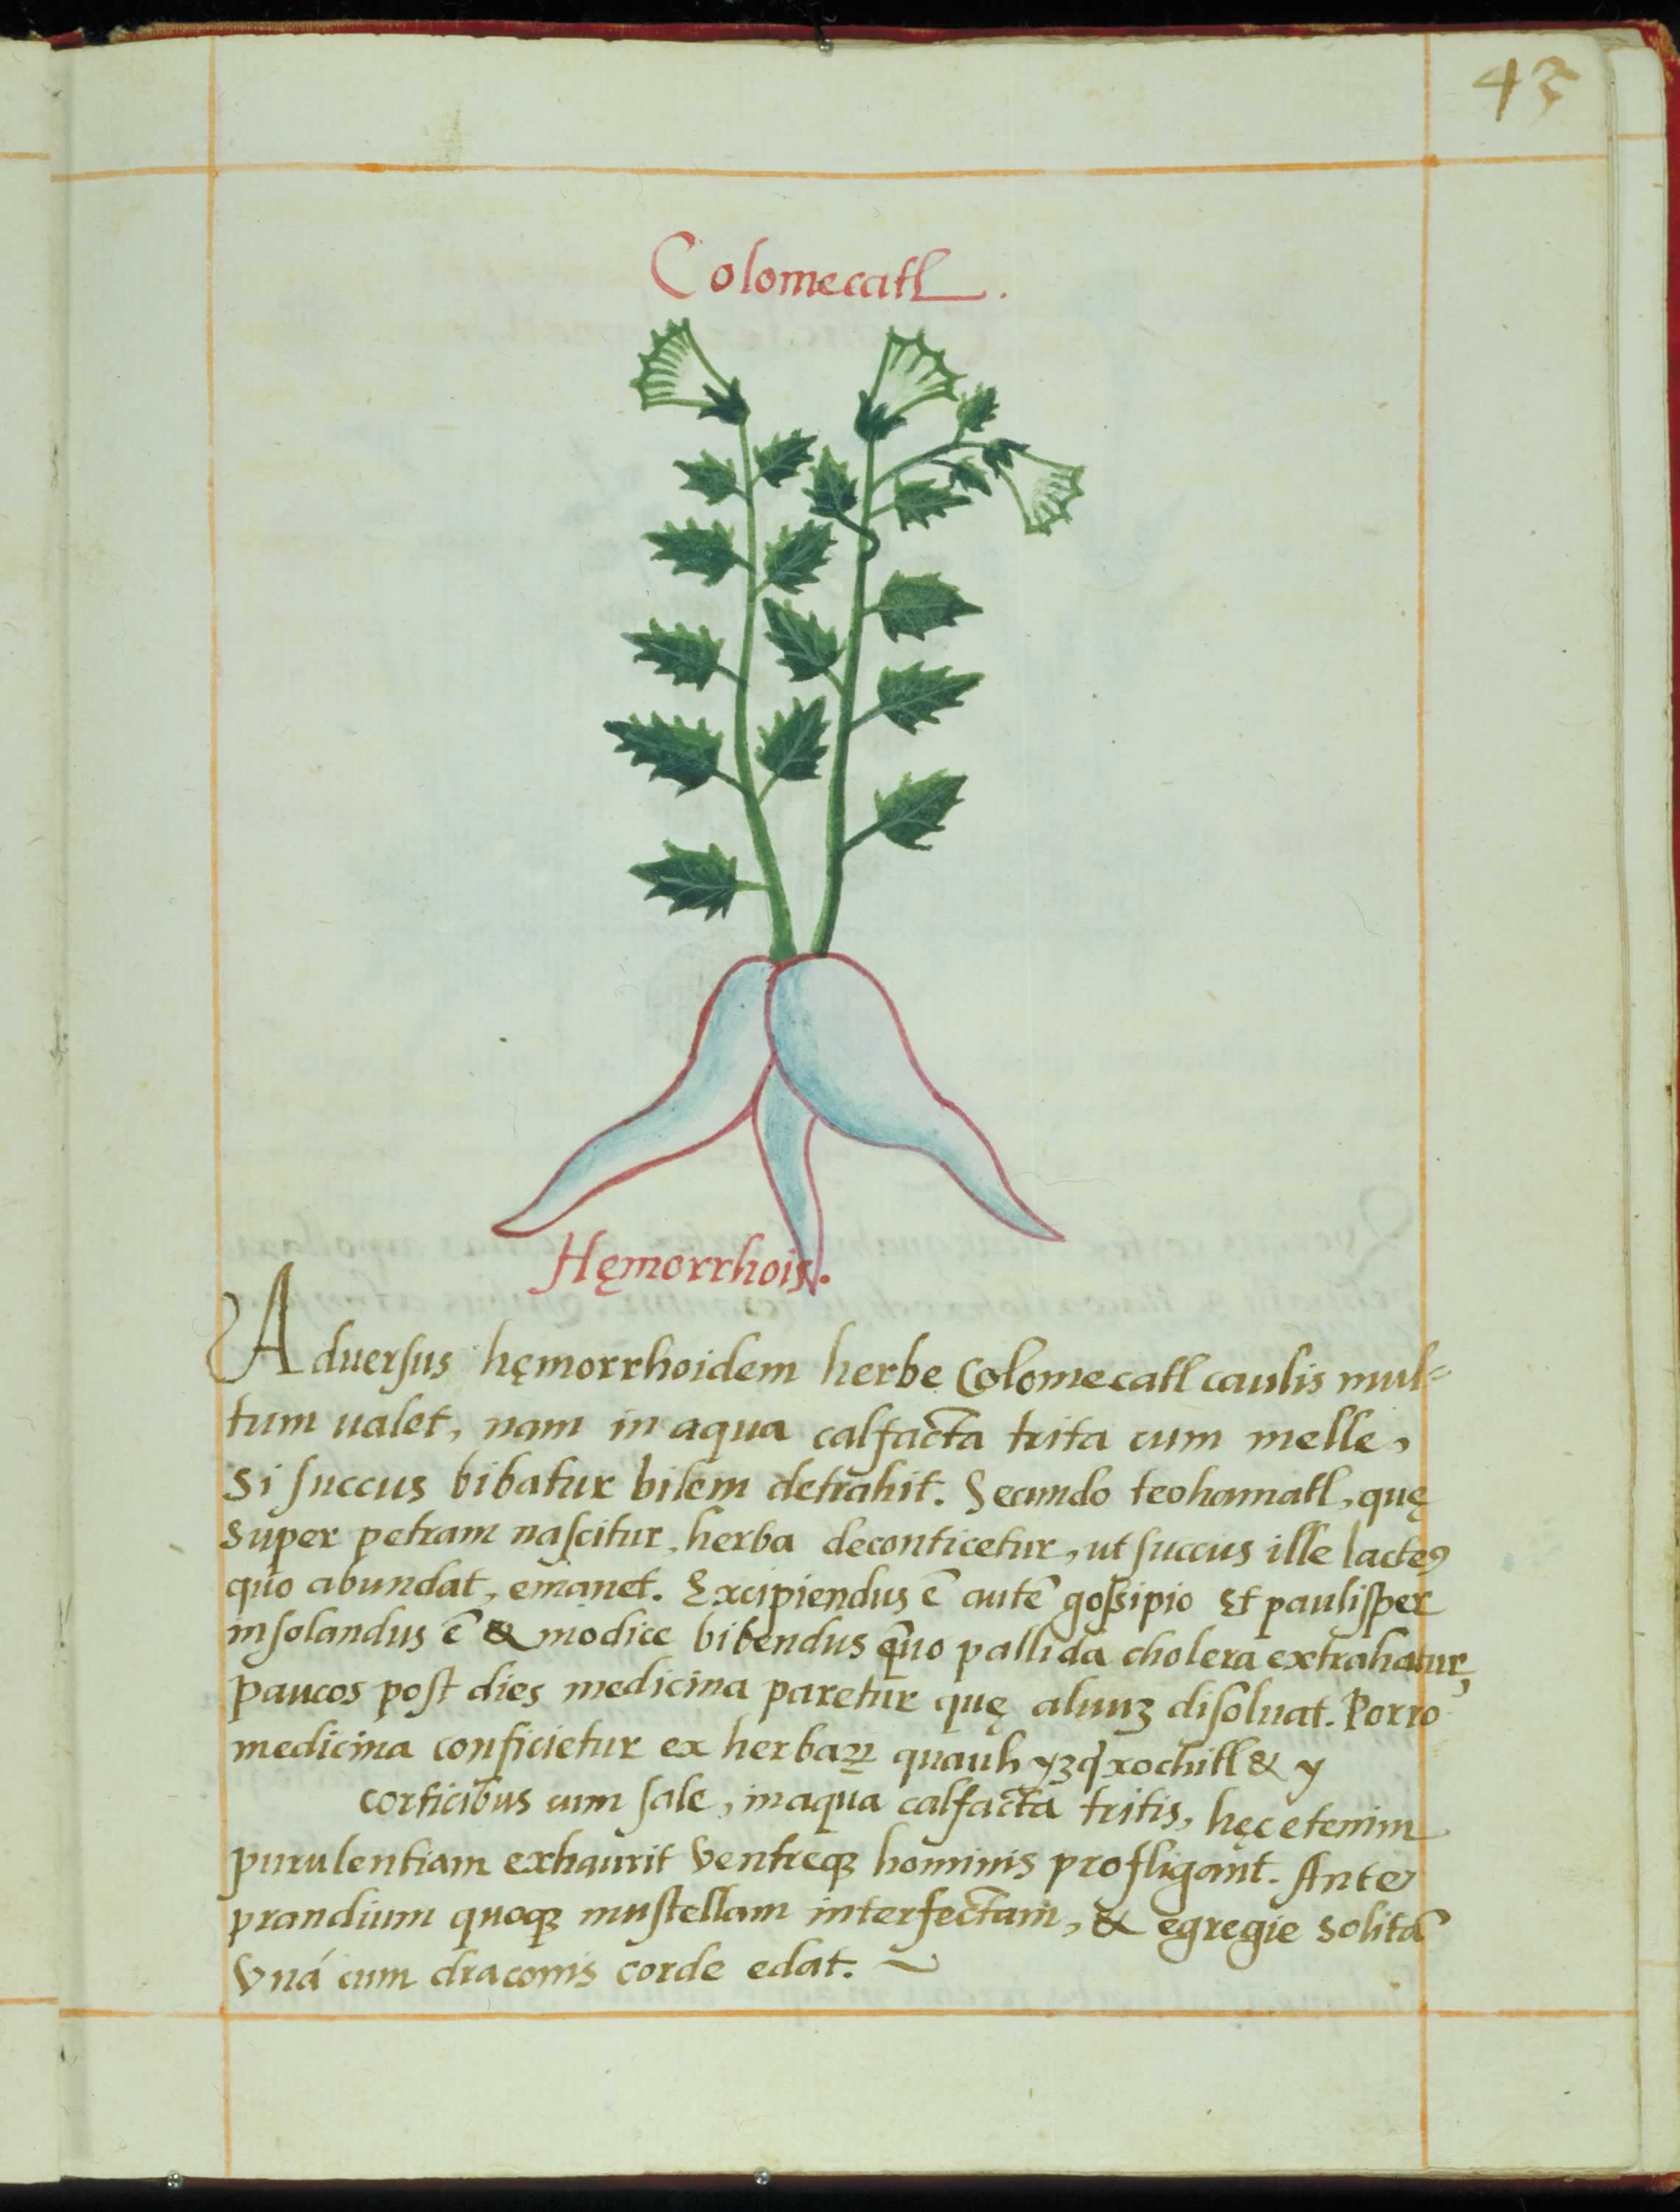 43
Colomecatl.
Hęmorrhois.
Aduerſus hęmorrhoidem herbe Colomecatl caulis mul=
tum ualet, nam in aqua calfacta trita cum melle,
Si ſuccus bibatur bilem detrahit. Secundo teohamatl, quę
super petram naſcitur, herba deconticetur, ut ſuccus ille lacteꝰ
quo abundat, emanet. Excipiendus ē autē goſsipio Et pauliſper
inſolandus ē & modice bibendus quo pallida cholera extrahatur,
paucos poſt dies medicina paretur quę aluuꝫ diſoluat. Porro
medicina conficietur ex herbaꝝ quauh yꝫq̄xochitl & y
corticibus cum ſale, in aqua calfacta tritis, hęc etenim
purulentiam exhaurit Ventreqꝫ hominis profligant. Ante
prandium quoqꝫ muſtellam interfectam, & egregie solitā
Vná cum draconis corde edat.